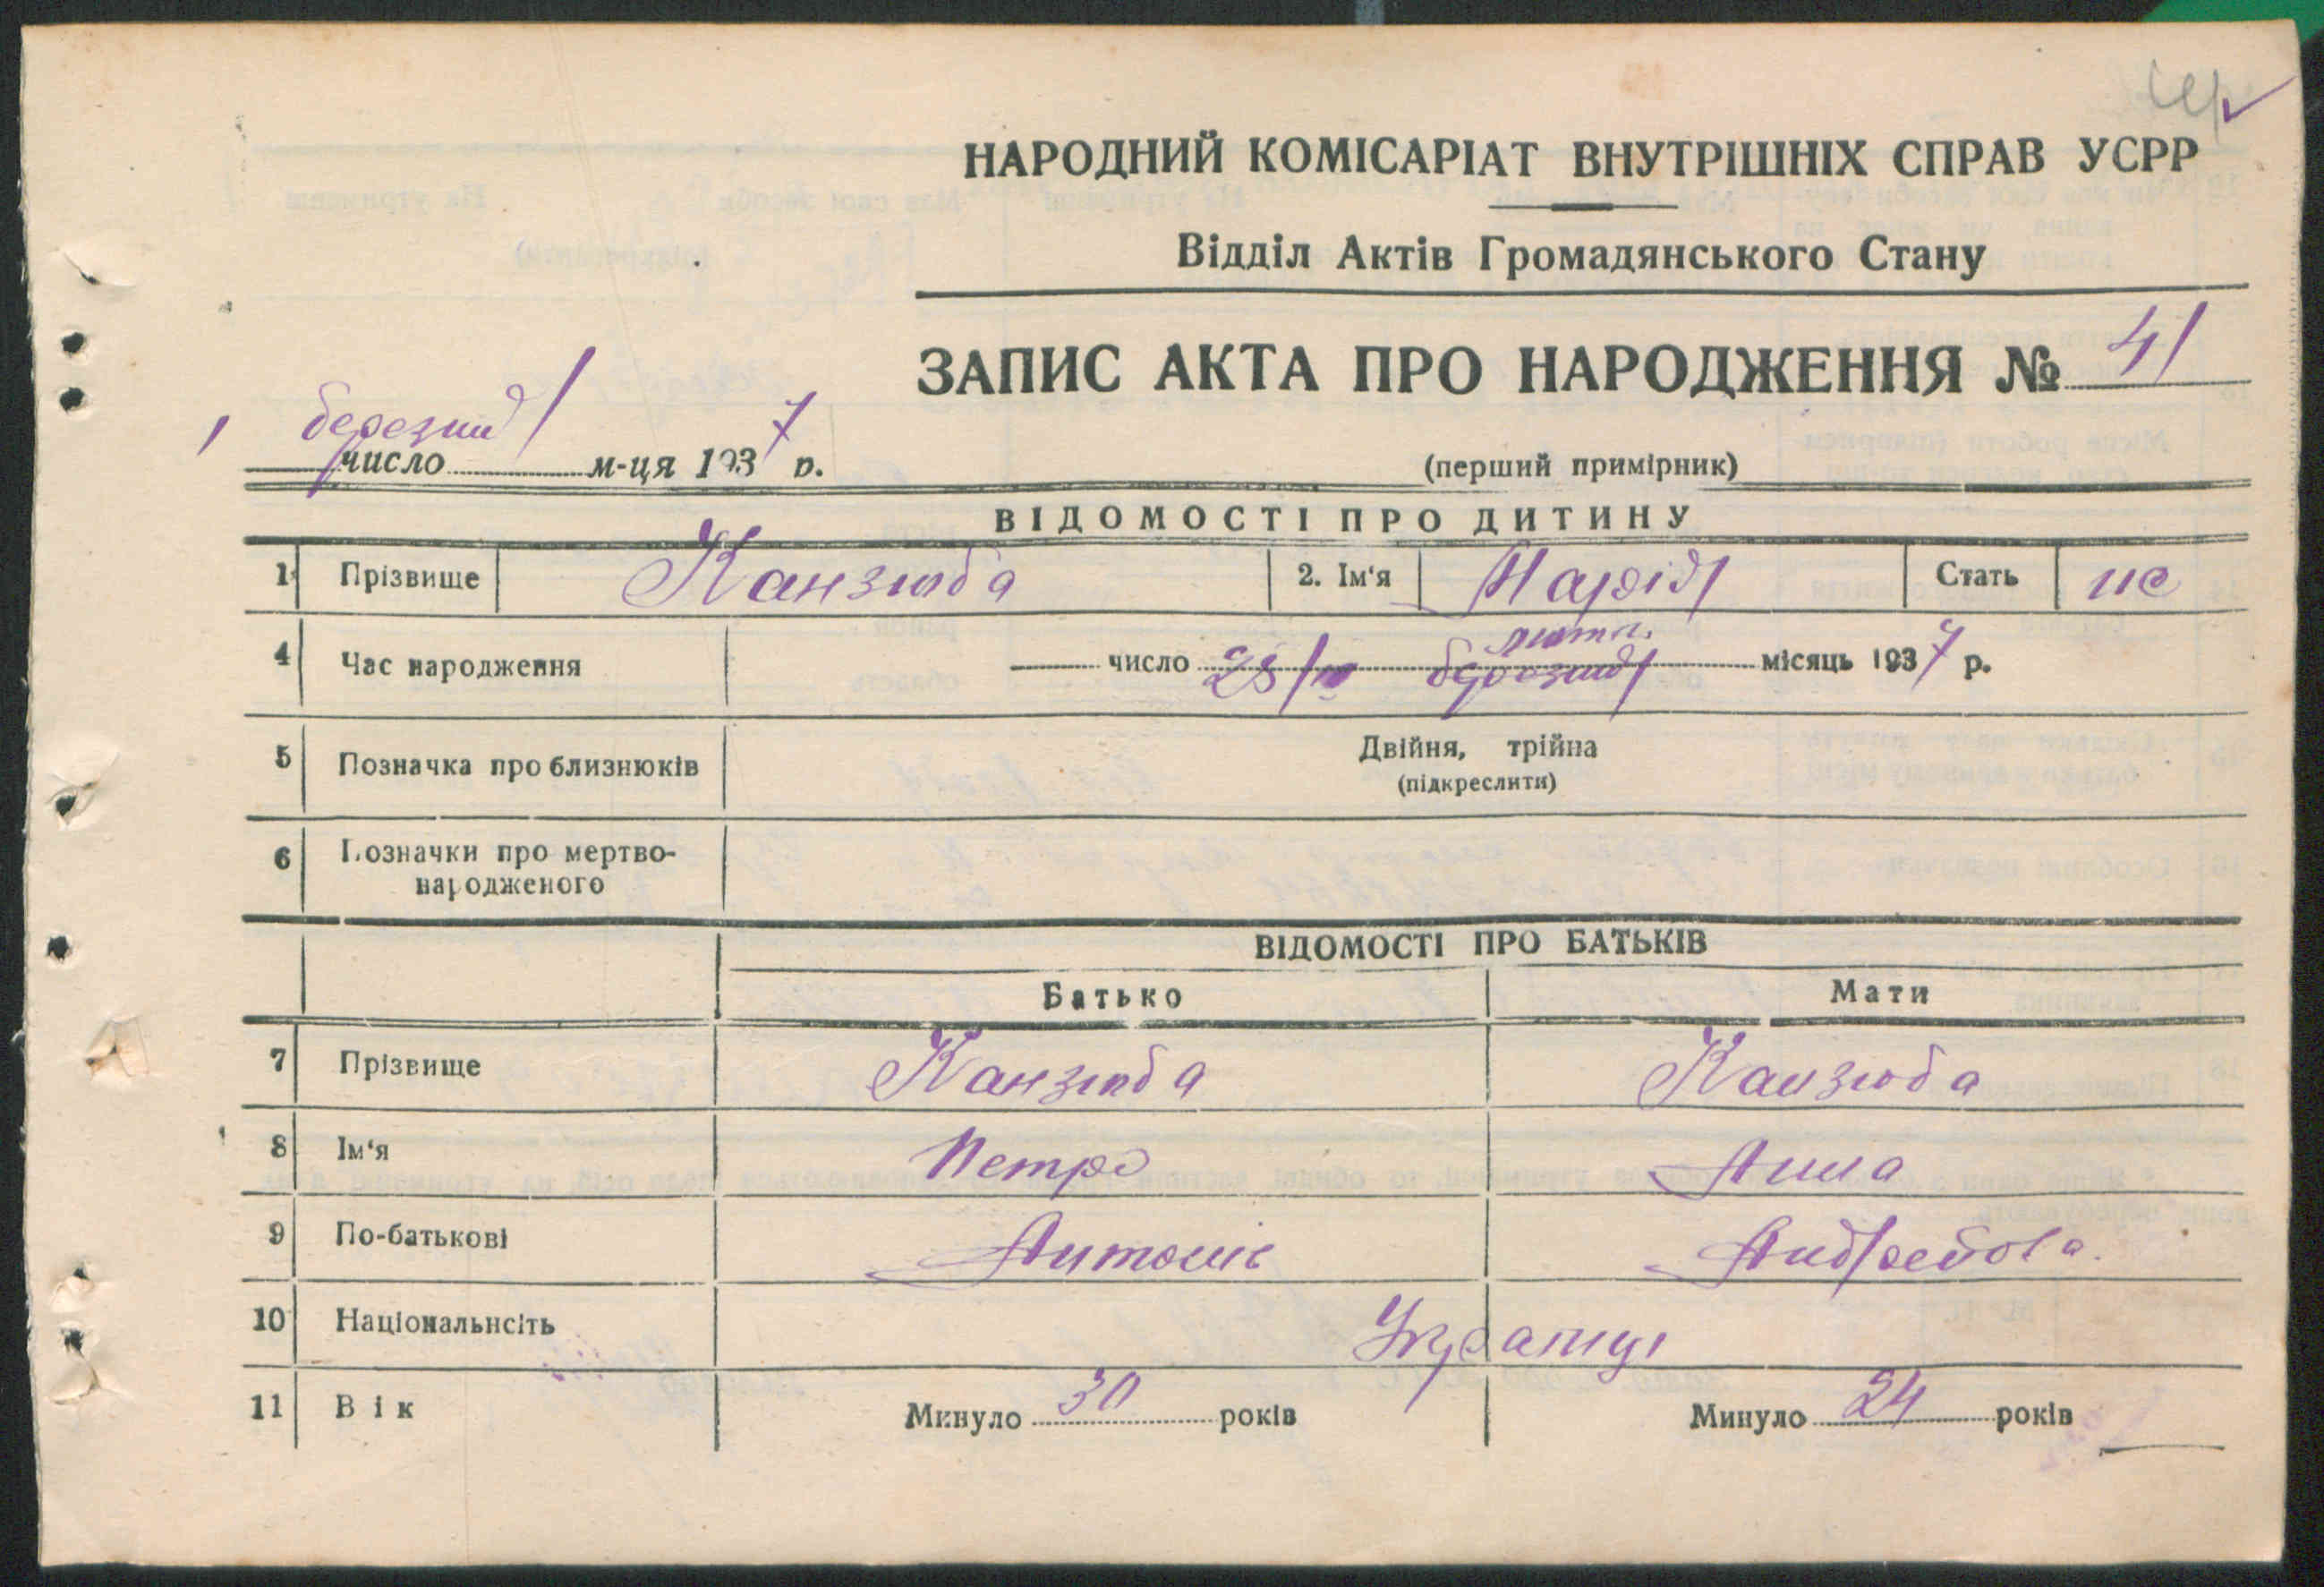 НАРОДНИЙ КОМІСАРІАТ ВНУТРІШНІХ СПРАВ УСРР
Відділ Актів Громадянського Стану
ЗАПИС АКТА ПРО НАРОДЖЕННЯ № 41
1 березня
число м-ця 1937 р.
(перший примірник)
ВІДОМОСТІ ПРО ДИТИНУ
1 Прізвище Канзюба 2. Ім'я Марія Стать
4 Час народження число 28 березня місяць 1937 р.
5 Позначка про близнюків Двійня, трійна
(підкреслити)
6 Позначки про мертво-
народженого
ВІДОМОСТІ ПРО БАТЬКІВ
Батько Мати
7 Прізвище Канзюба Канзюба
8 Ім'я Петро Анна
9 По-батькові Антонів Андреєва.
10 Національнсіть Українці
11 Вік Минуло 30 років Минуло 24 років